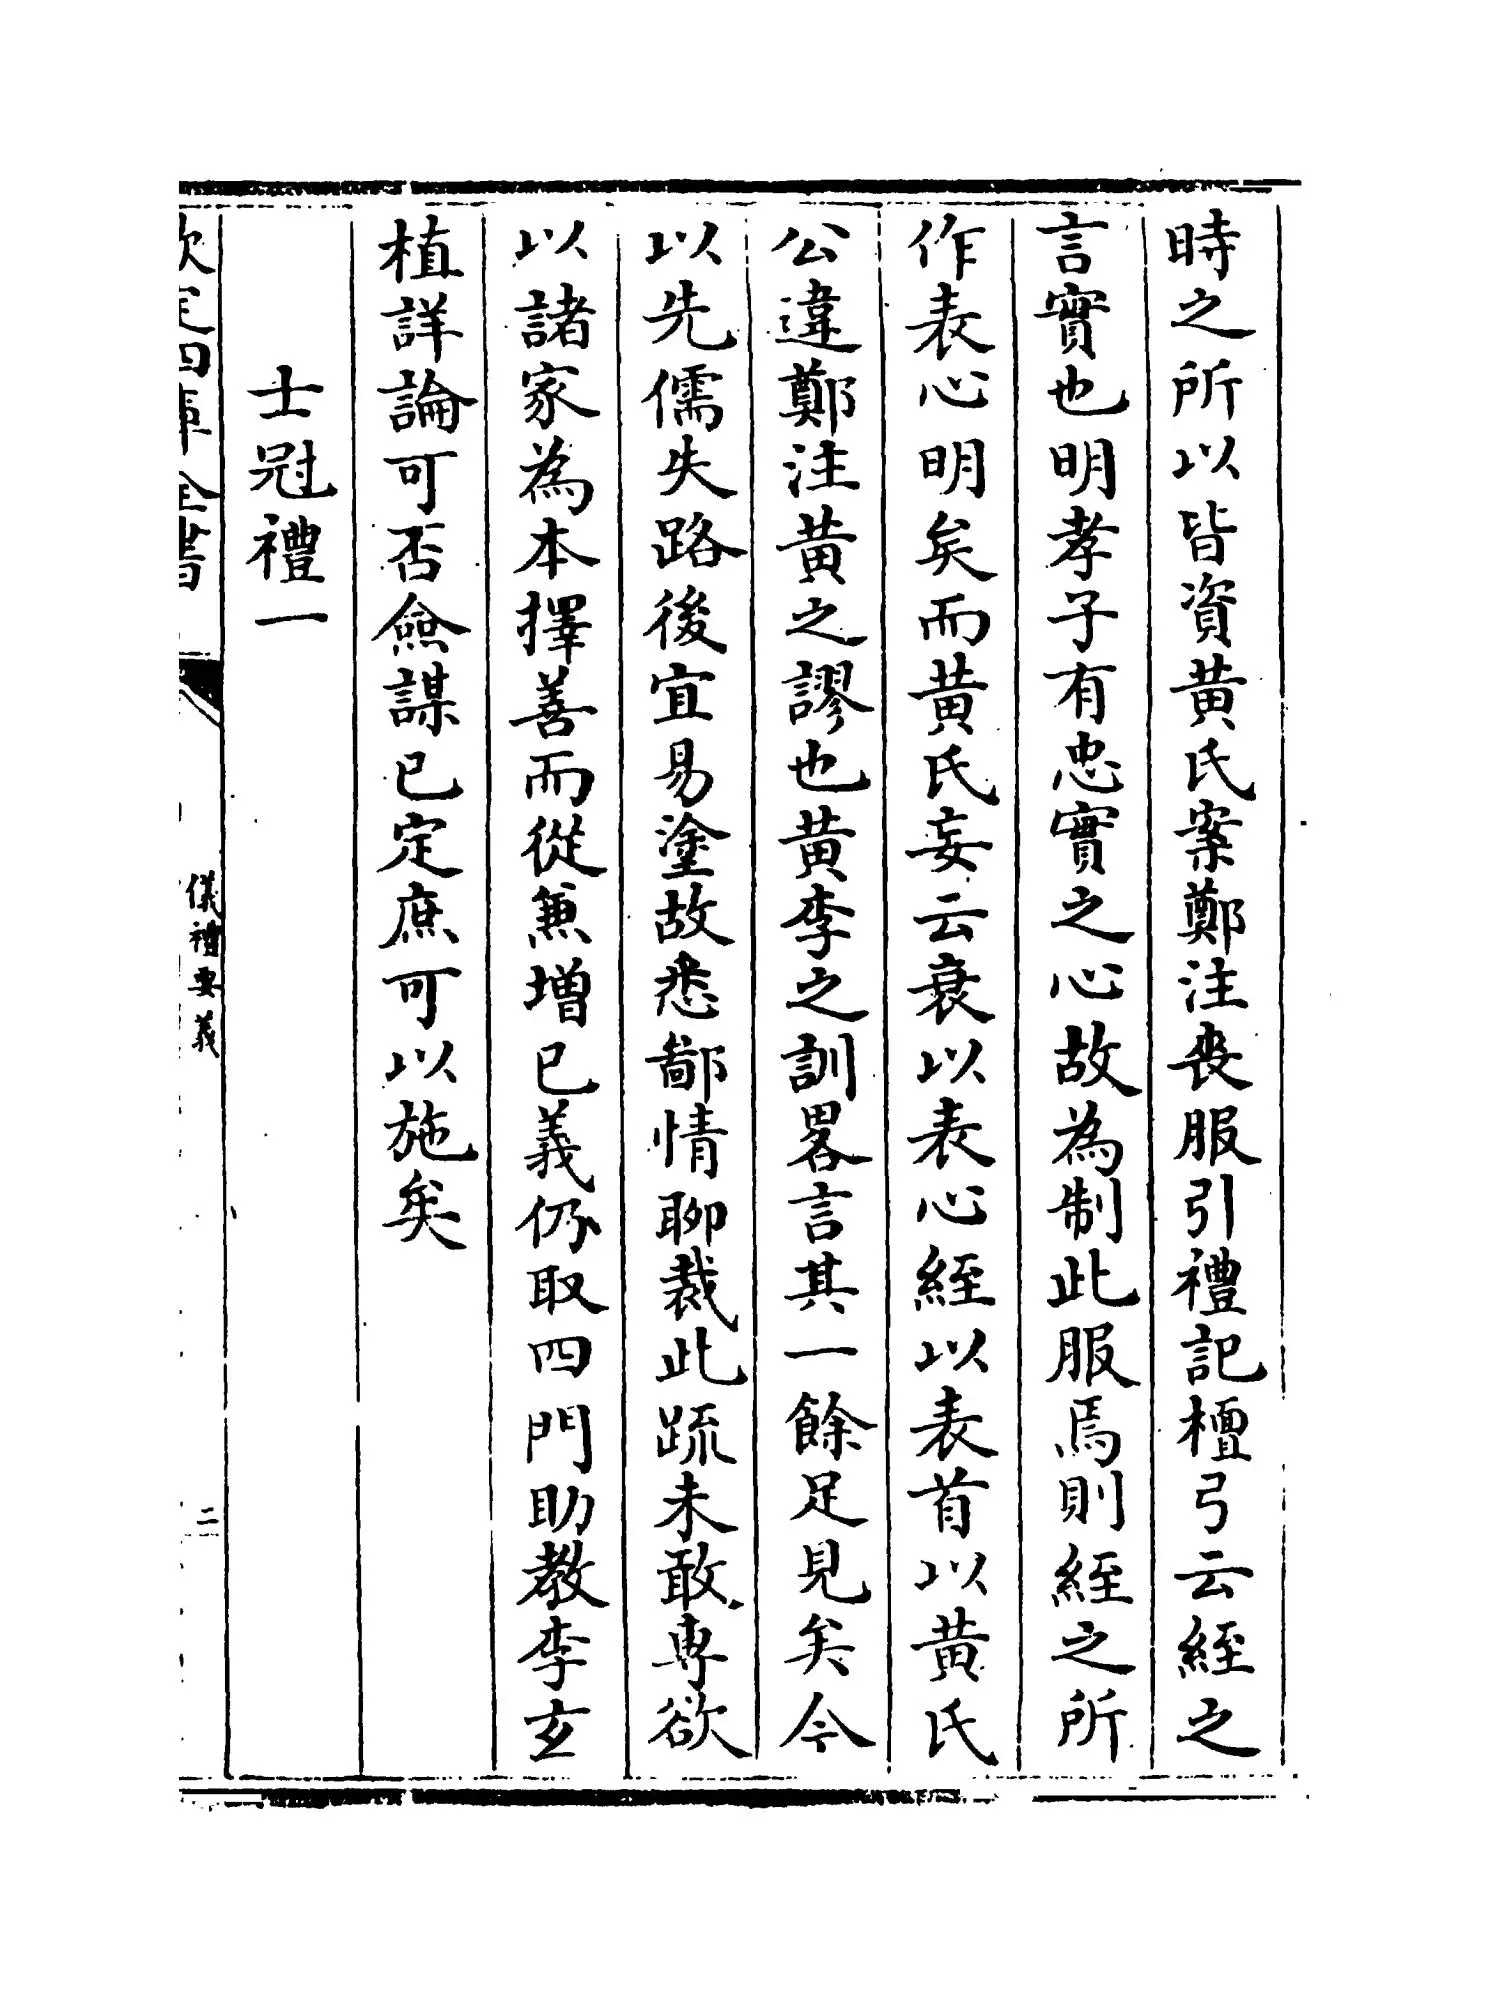 時之所以皆資黄氏案鄭注喪服引禮記檀弓云絰之
言實也明孝子有忠實之心故為制此服焉則絰之所
作表心明矣而黄氏妄云衰以表心絰以表首以黄氏
公違鄭注黄之謬也黄李之訓畧言其一餘足見矣今
以先儒失路後宜易塗故悉鄙情聊裁此疏未敢專欲
以諸家為本擇善而從兼增已義仍取四門助教李玄
植詳論可否僉謀已定庶可以施矣
士冠禮一
欽定四庫全書
儀禮要義
二